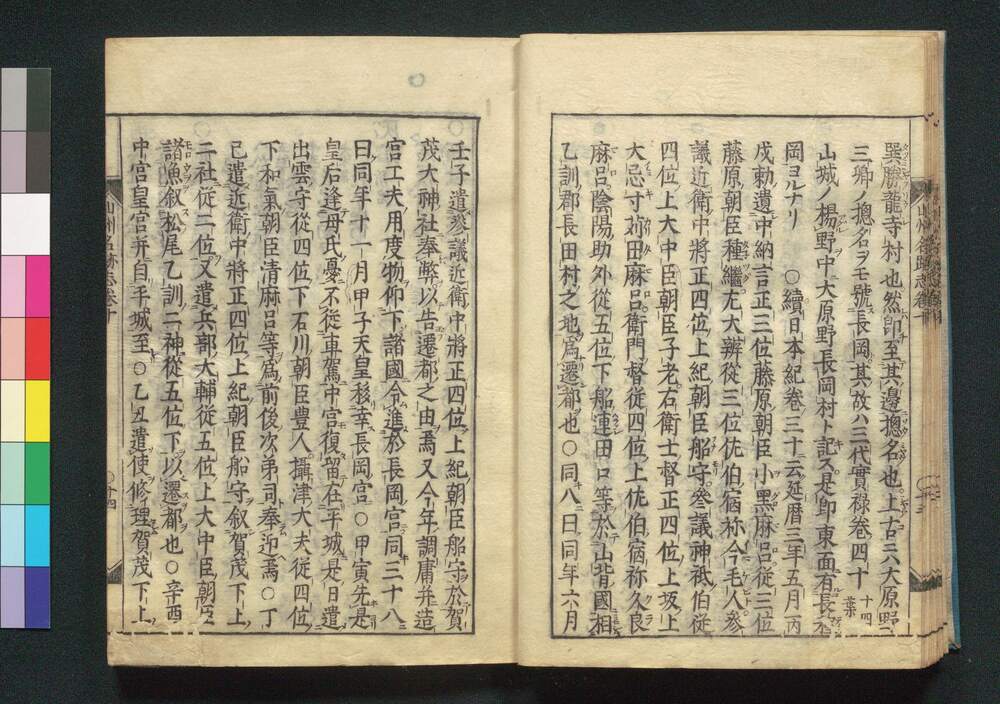 巽勝龍寺村也然卽至其邊摠名也上古ニハ大原野
三鄉ノ摠名ヲモ號長岡其故ハ三代實祿卷四十
十四葉
山城ノ楊野中大原野長岡村ト記ス是卽東面有長
岡ヨルナリ ○續日本紀卷三十云延曆三年五月丙
戌勅遣中納言正三位藤原朝臣小黑麻呂從三位
藤原朝臣種繼左大辨從三位佐伯宿祢今毛人參
議近衛中將正四位上紀朝臣船守參議神祇伯從
四位上大中臣朝臣子老右衛士督正四位上坂上
大忌寸苅田麻呂衛門督從四位上佐伯宿祢久良
麻呂陰陽助外從五位下船連田口等於山背國相
乙訓郡長田村之地爲遷都也○同八日同年六月
壬子遣參議近衛中將正四位上紀朝臣船守於賀
茂大神社奉弊以告遷都之由焉又今年調庸并造
宮工夫用度物仰下諸國令進於長岡宮同三十八
曰同年十一月甲子天皇移幸長岡宮○甲寅先是
皇后逢母氏憂不從車駕中宮復留在平城是日遣
出雲守從四位下石川朝臣豊人攝津大夫從四位
下和氣朝臣清麻呂等爲前後次弟司奉迎焉○丁
巳遣近衛中將正四位上紀朝臣船守叙賀茂下上
二社從二位又遣兵部大輔從五位上大中臣朝臣
諸魚叙松尾乙訓二神從五位下以遷都也○辛酉
中宮皇宮并自平城至○乙丑遣使修理賀茂下上
山州名跡志卷十
十四